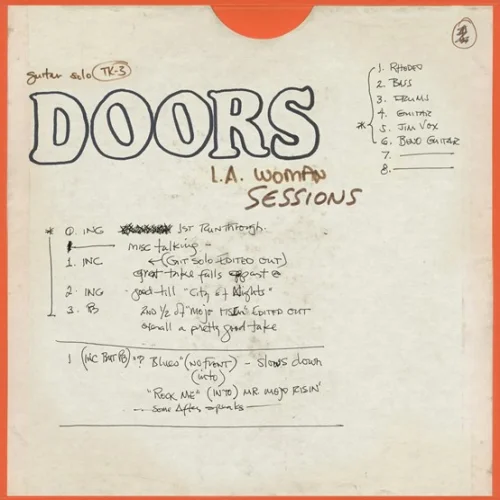 guitar solo TK-3
DOORS
L.A. WOMAN
SESSIONS
1. RHODES
2. BASS
3. DRUMS
4. GUITAR
* 5. JIM VOX
6. BEND GUITAR
7.
8.
* 0. INC 1ST RUNTHROUGH.
misc talking -
1. INC ←(GIT SOLO EDITED OUT)
great take falls apart @
2. INC good till "City of Nights"
3. PB 2ND 1/2 of "MOJO RISIN" EDITED OUT
overall a pretty good take
1 (INC BUT PB) "? Blues" (NO FRONT) - Slows down
(into)
"ROCK ME" (INTO) MR. MOJO RISIN'
- some After